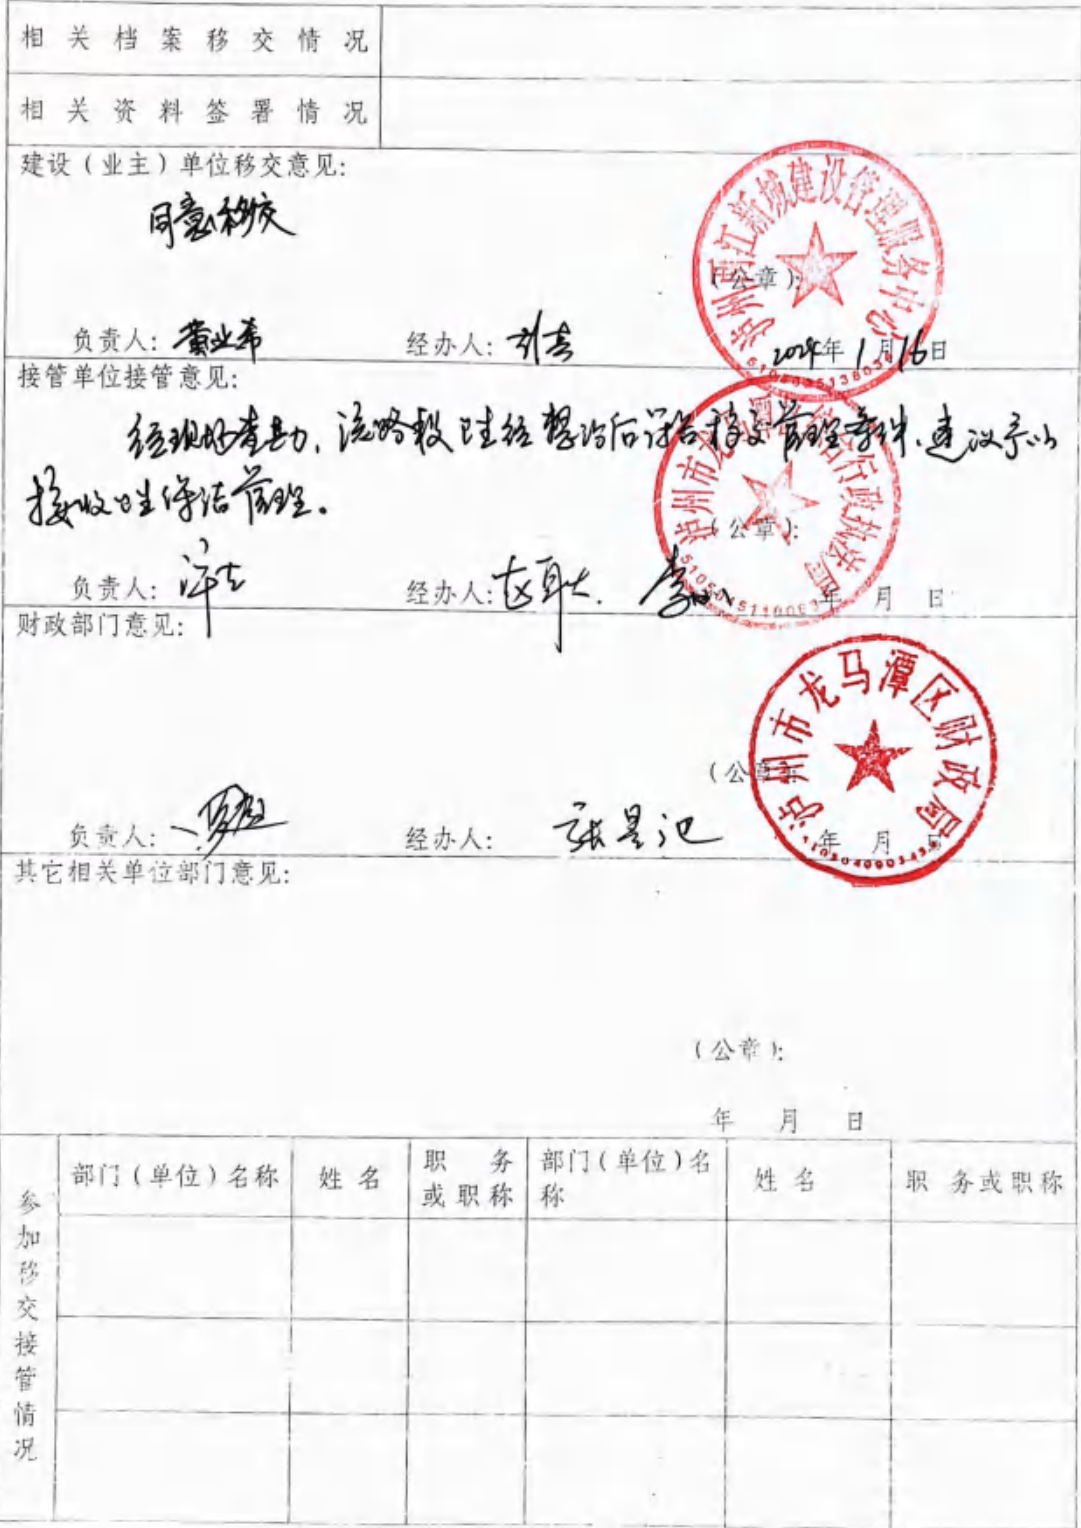 相关档案移交情况
相关资料签署情况
建设（业主）单位移交意见：
同意移交
泸州两江新城建设管理服务中心
（公章）：
负责人： 经办人： 2024年1月16日
接管单位接管意见：
经现场查勘，该路段卫生经整治后符合移交管理条件，建议予以
接收卫生保洁管理。
泸州市龙马潭区综合行政执法局
（公章）：
负责人： 经办人： 年 月 日
财政部门意见：
泸州市龙马潭区财政局
（公章）：
负责人： 经办人： 年 月 日
其它相关单位部门意见：
（公章）：
年 月 日
参加移交接管情况
部门（单位）名称 姓名 职务或职称 部门（单位）名称 姓名 职务或职称